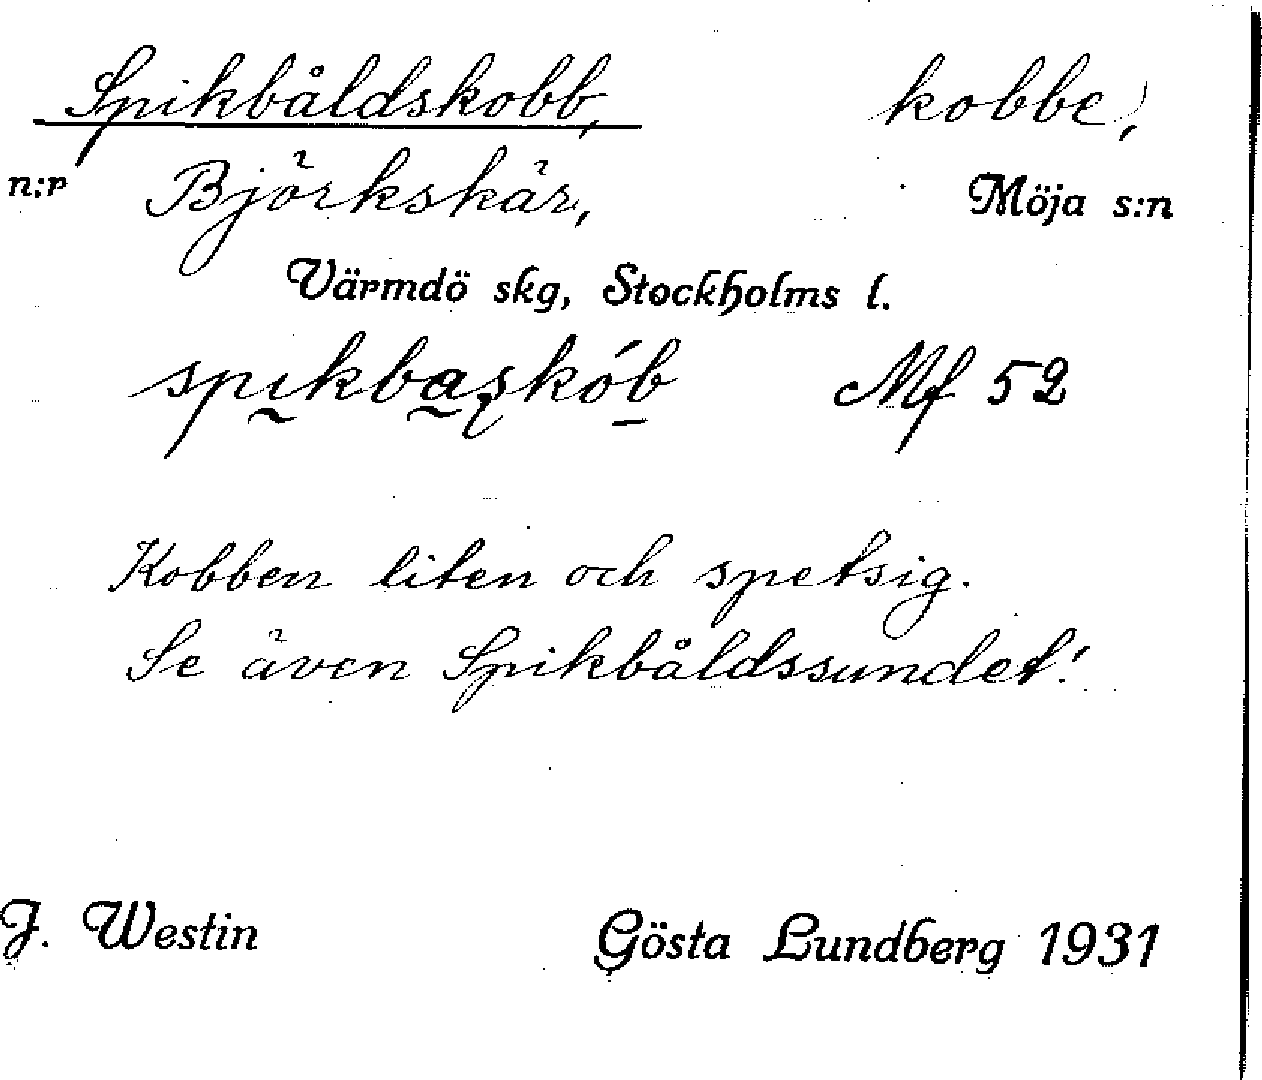 Spikbåldskobb, kobbe,
n:r Björkskär, Möja s:n
Värmdö skg, Stockholms l.
Mf 52
Kobben liten och spetsig.
Se även Spikbåldssundet!
J. Westin Gösta Lundberg 1931